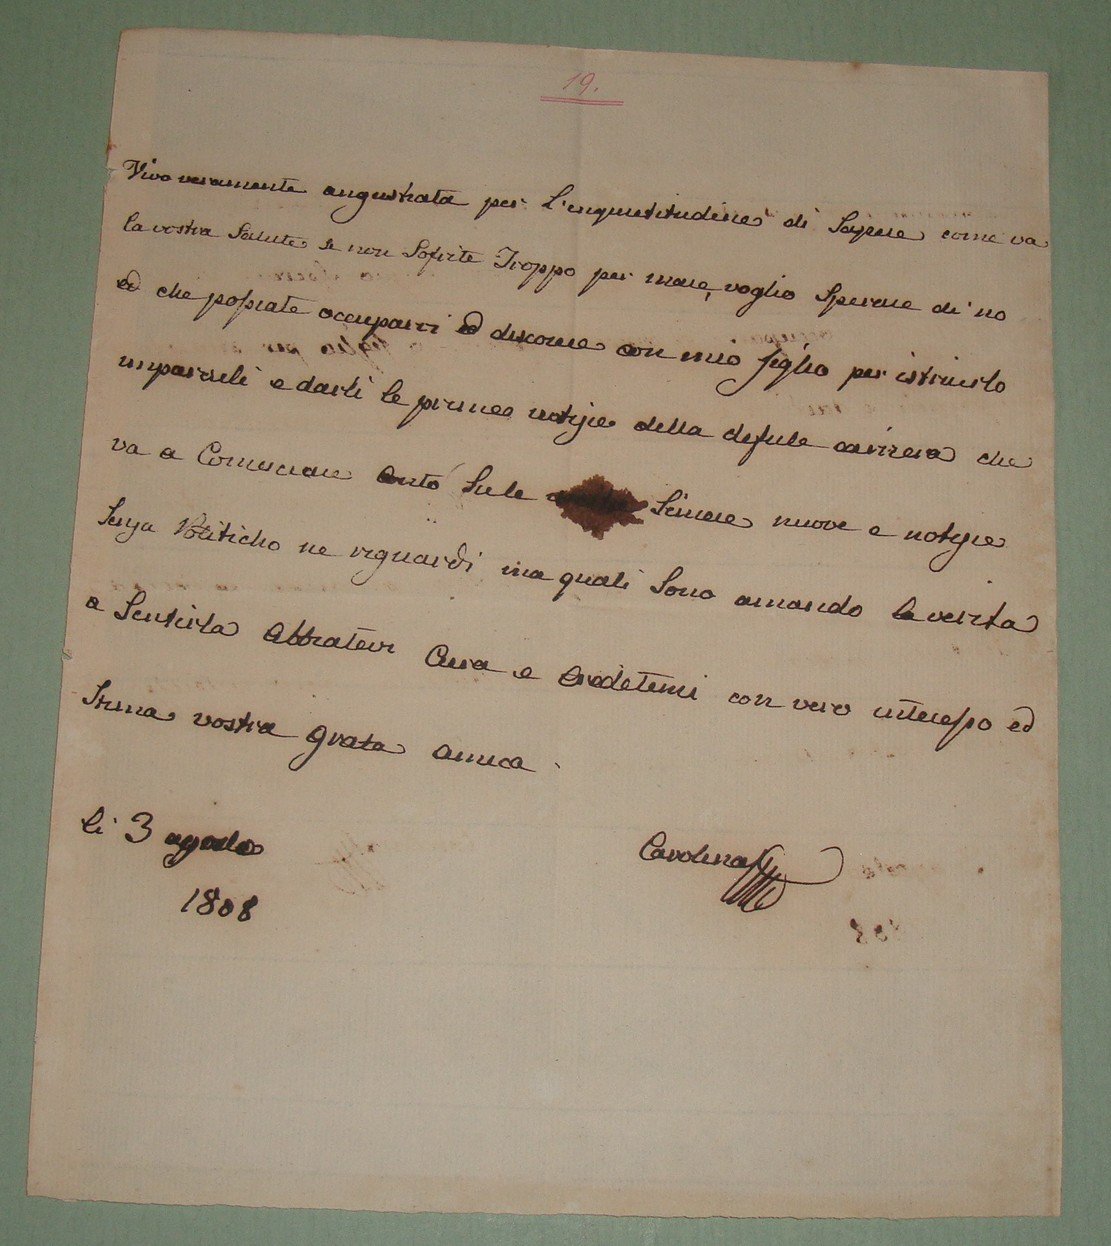 19.
Vivo veramente angustiata per l'enquietitudine di Sapere come va
la vostra Salute se non Sofrite Troppo per mare, voglio Sperare di no
ed che possiate occuparvi ed discorre con mio figlio per istruirlo
impararli e darli le prime notizie della defile carriera che
va a Comenciare Sule Sicure nuove e notizie
Senza Politicho ne riguardi ma quali Sono amando la verita
a Sentirla Abbiatevi Cura e Credetemi con vero interesso ed
Stima vostra grata amica
li 3 agosto
1808
Carolina